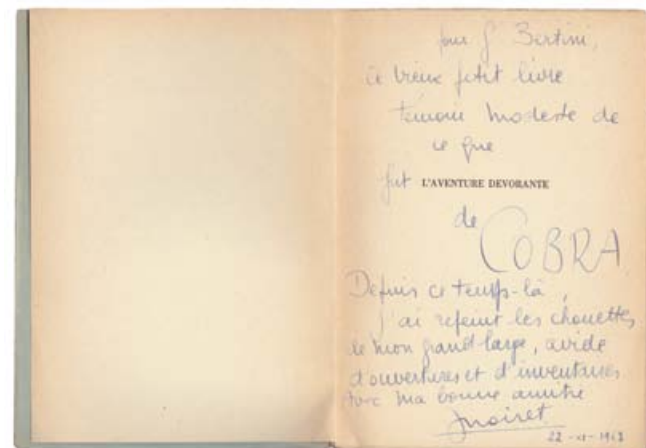 pour G Bertini,
ce vieux petit livre
témoin modeste de
ce que
fut L'AVENTURE DEVORANTE
de COBRA
Depuis ce temps-là,
j'ai repeint les chouettes
de mon grand-large, avide
d'ouvertures et d'inventaires
Avec ma bonne amitié
Noiret